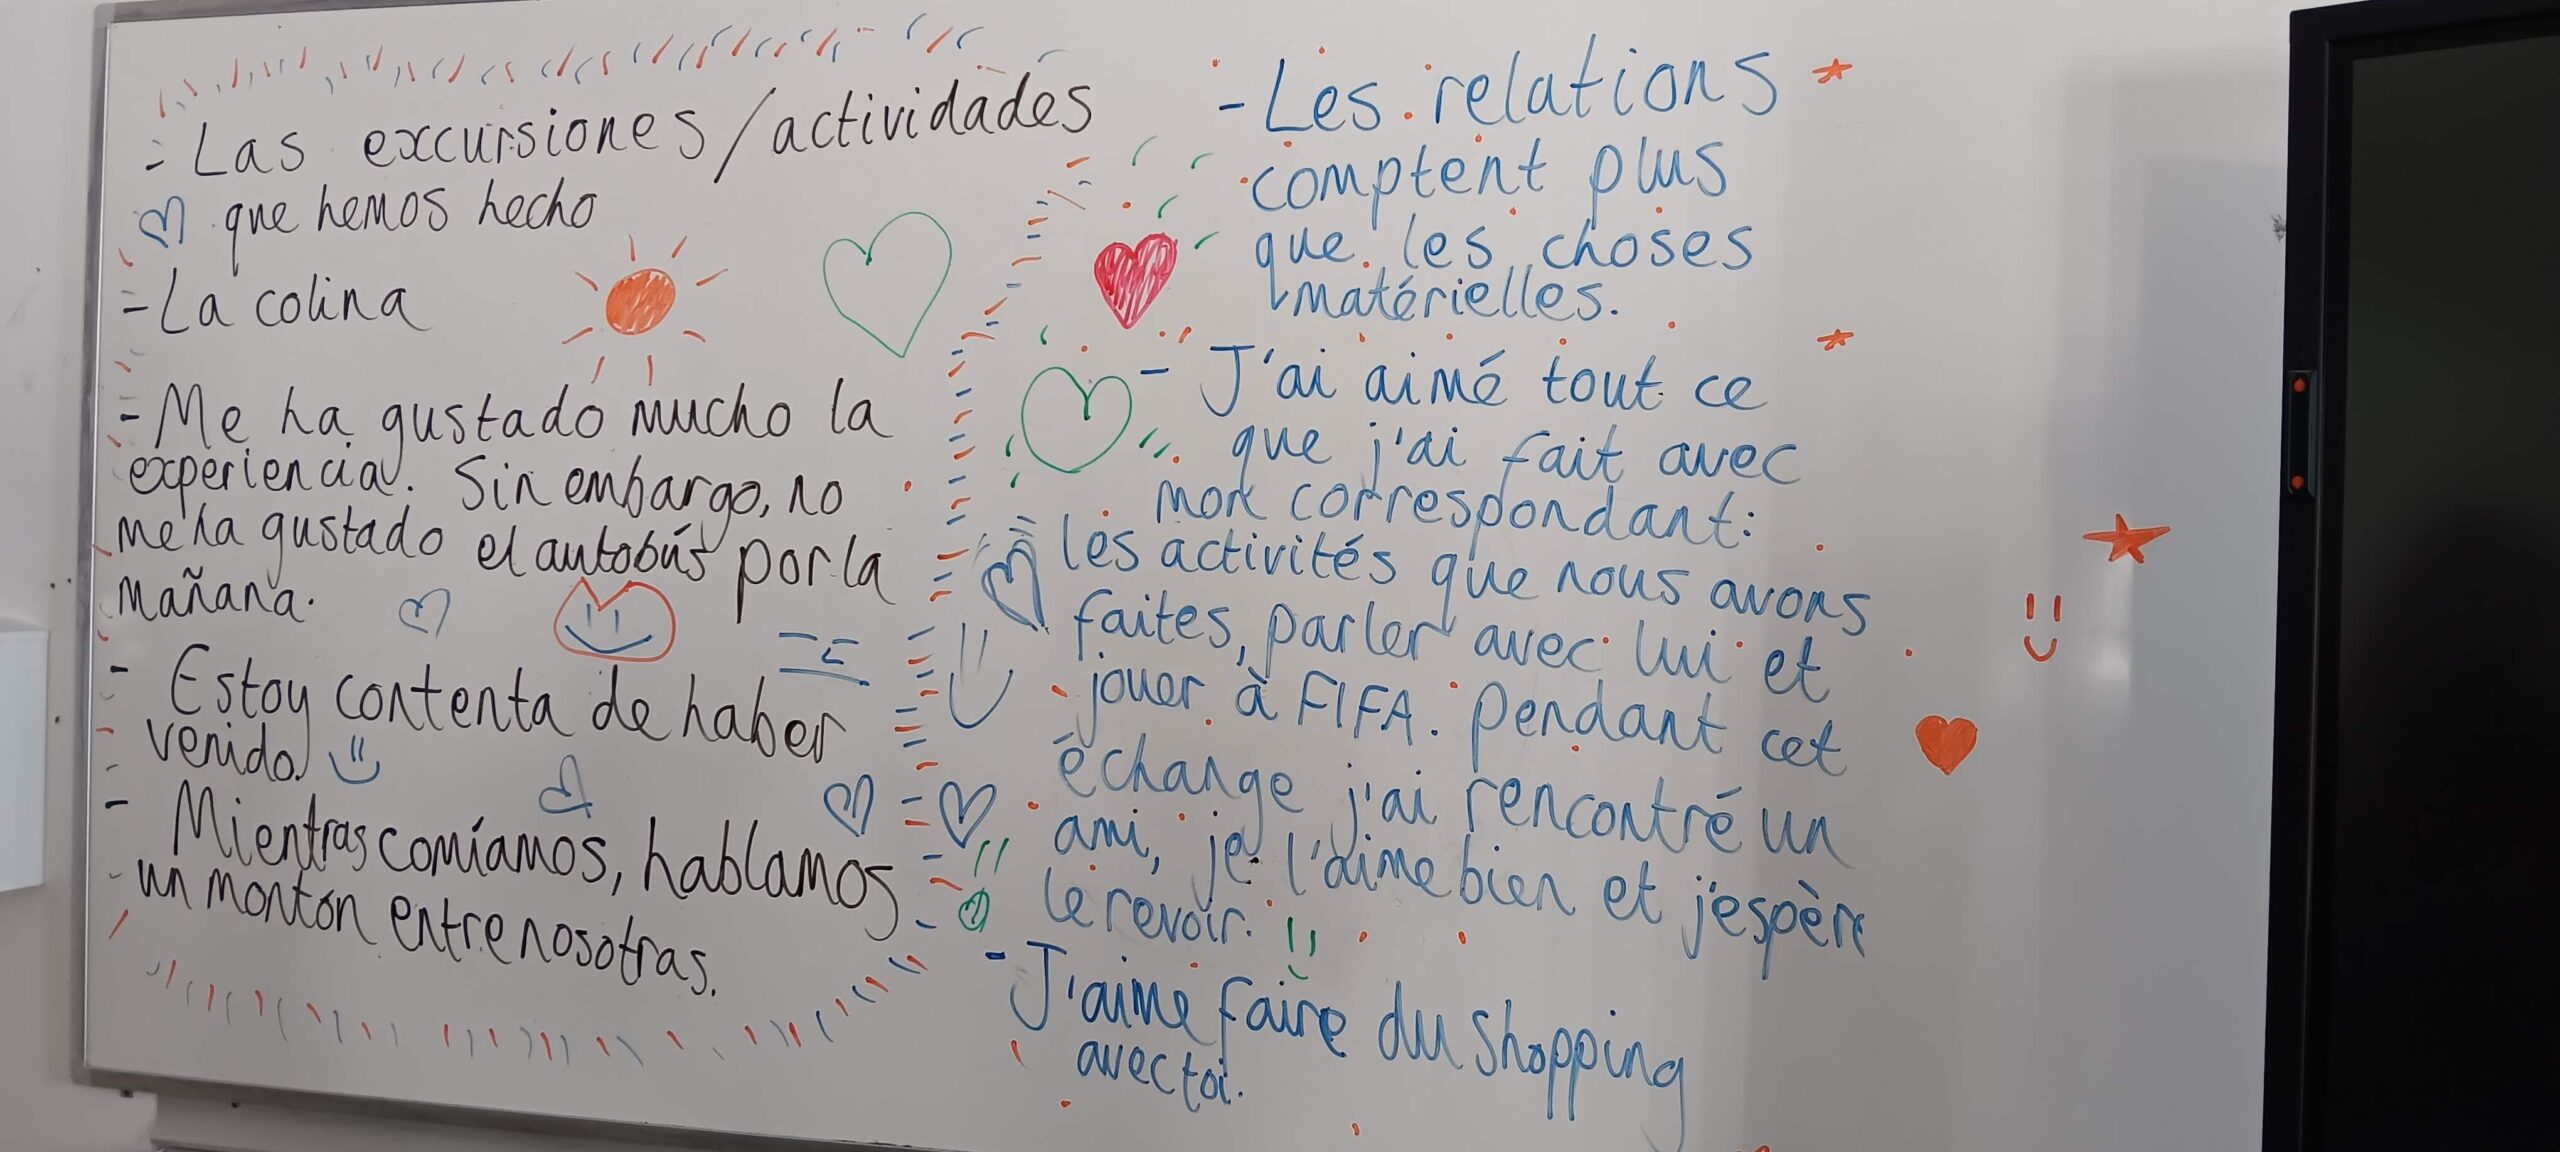 - Las excursiones/actividades
que hemos hecho
- La colina
- Me ha gustado mucho la
experiencia. Sin embargo, no
me ha gustado el autobús por la
mañana.
- Estoy contenta de haber
venido.
- Mientras comíamos, hablamos
un montón entre nosotras.
- Les relations
comptent plus
que les choses
matérielles.
- J'ai aimé tout ce
que j'ai fait avec
mon correspondant:
les activités que nous avons
faites, parler avec lui et
jouer à FIFA. Pendant cet
échange j'ai rencontré un
ami, je l'aime bien et j'espère
le revoir.
- J'aime faire du shopping
avec toi.